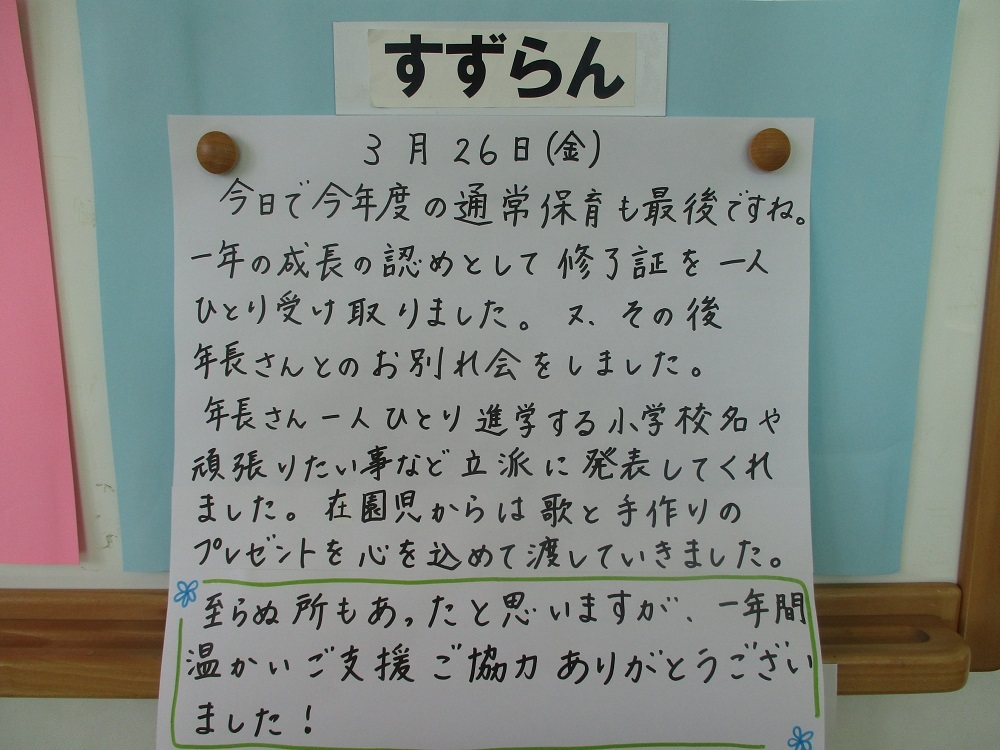 すずらん
3月26日(金)
今日で今年度の通常保育も最後ですね。
一年の成長の認めとして修了証を一人
ひとり受け取りました。又、その後
年長さんとのお別れ会をしました。
年長さん一人ひとり進学する小学校名や
頑張りたい事など立派に発表してくれ
ました。在園児からは歌と手作りの
プレゼントを心を込めて渡していきました。
至らぬ所もあったと思いますが、一年間
温かいご支援ご協力ありがとうござい
ました!